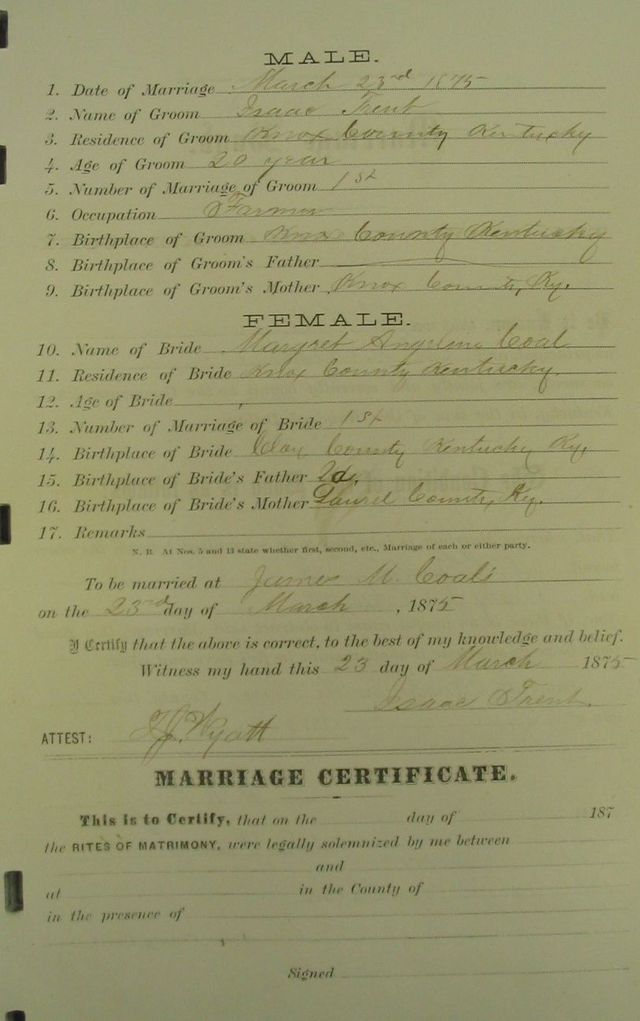 MALE.
1. Date of Marriage March 23rd 1875
2. Name of Groom Isaac Trent
3. Residence of Groom Knox County Kentucky
4. Age of Groom 20 year
5. Number of Marriage of Groom 1st
6. Occupation Farmer
7. Birthplace of Groom Knox County Kentucky
8. Birthplace of Groom's Father
9. Birthplace of Groom's Mother Knox County, Ky.
FEMALE.
10. Name of Bride Margret Angeline Coal
11. Residence of Bride Knox County Kentucky
12. Age of Bride
13. Number of Marriage of Bride 1st
14. Birthplace of Bride Clay County Kentucky Ky.
15. Birthplace of Bride's Father
16. Birthplace of Bride's Mother Laurel County, Ky.
17. Remarks
N. B. At Nos. 5 and 13 state whether first, second, etc., Marriage of each or either party.
To be married at James M. Coals
on the 23rd day of March, 1875
I Certify that the above is correct, to the best of my knowledge and belief.
Witness my hand this 23 day of March 1875
Isaac Trent
ATTEST: Wyatt
MARRIAGE CERTIFICATE.
This is to Certify, that on the day of 187
the RITES OF MATRIMONY, were legally solemnized by me between
and
at in the County of
in the presence of
Signed